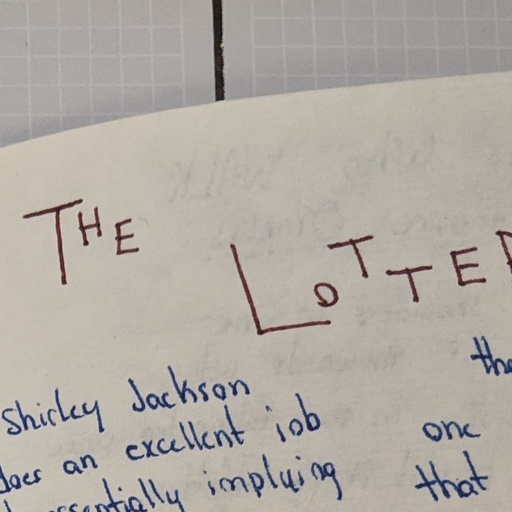 THE
LOTTE
Shirley Jackson
does an excellent job
essentially implying
the
one
that